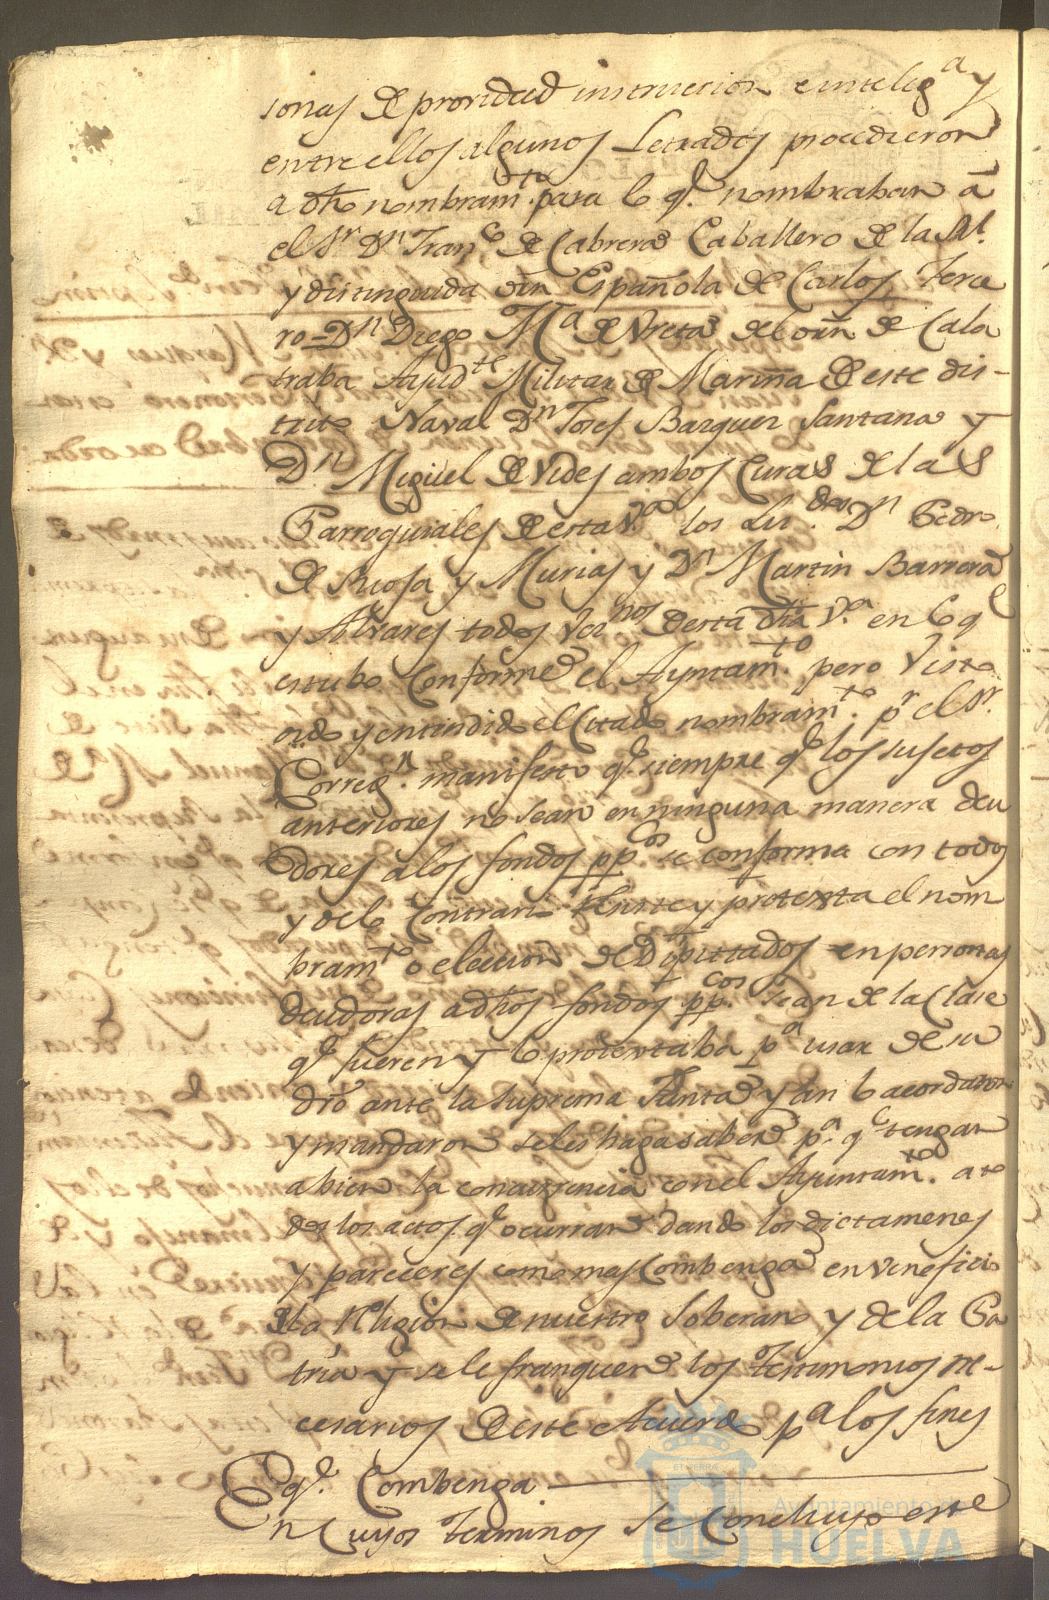 sonas de provided instruccion e intelig.ª y
entre ellos algunos Letrados procedieron
a dho nombram.to para lo q.e nombraban â
el S.r D.n Fran.co de Cabrera Caballero de la Rl.
y distinguida orn Española de Carlos Terce
ro = D.n Diego M.ª de Vreta del orn de Cala
traba Ayud.te Militar de Marina de este dis-
trito Naval D.n Josef Barquer Santana y
D.n Miguel de Vides ambos Curas de las
Parroquiales de esta V.ª los Lic.dos D.n Pedro
de Rioja y Murias y D.n Martin Barrera
y Alvares todos Vec.nos de esta dha V.ª en lo q.e
estubo Conforme el Ayuntam.to pero Visto
oido y entendido el Citado nombram.to p.r el S.r
Correg.r manifesto q.e siempre q.e los sujetos
anteriores no sean en ninguna manera deu
dores a los fondos pp.cos se conforma con todos
y de lo Contrario y protexta el nom
bram.to o eleccion de Diputtados en personas
deudoras a dhos fondos pp.cos sean de la Clase
q.e fueren y lo protextaba p.ª usar de su
dro ante la Suprema Junta y asi lo acordaron
y mandaron se les haga saber p.ª q.e tengan
a bien la concurrencia con el Ayuntam.to a to
dos los actos q.e ocurran dando los dictamenes
y pareceres como mas Combenga en veneficio
de la Religion de nuestro Soberano y de la Pa
tria y se le franqueen los Testimonios ne-
cesarios de este Acuerdo p.ª los fines
q.e Combenga.
En Cuyos Terminos Se Concluyo este
Ayuntamiento de
HUELVA